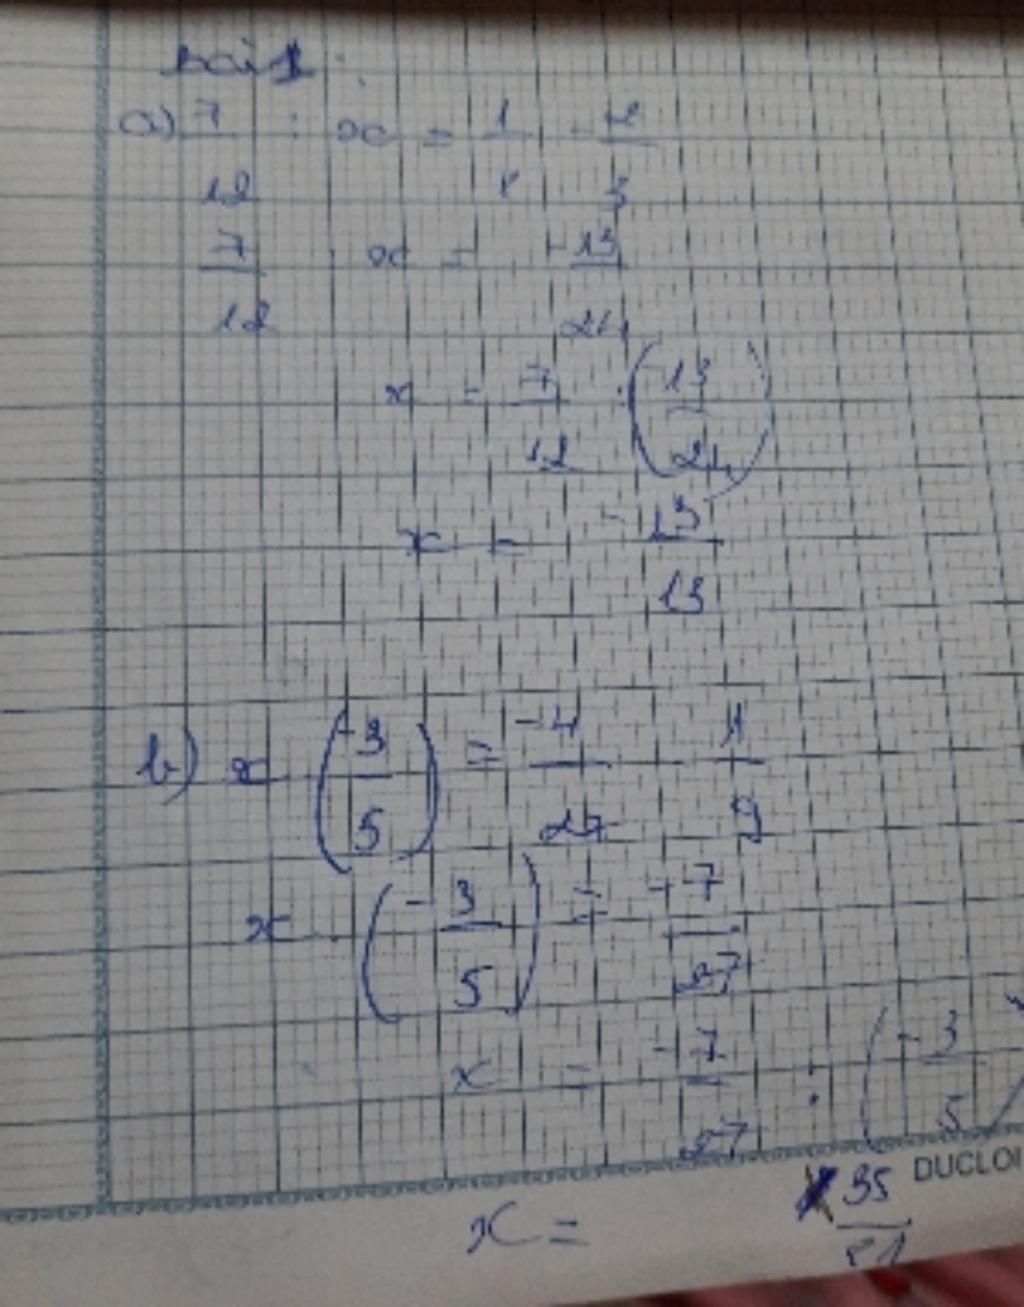 bài 1:
a) 7/12 : x = 1/8 - 2/3
7/12 : x = -13/24
x = 7/12 : (-13/24)
x = -13/13
b) x (-3/5) = -4/27 - 1/9
x . (-3/5) = -7/27
x = -7/27 : (-3/5)
DUCLOI
x = 35/81